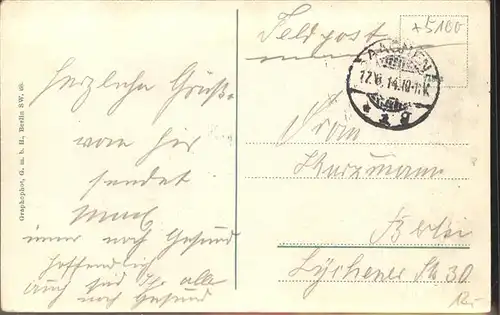 Graphophot, G. m. b. H., Berlin SW. 68.
Herzliche Grüße
von hier
sendet
immer noch Gesund
hoffendlich
auch seid Ihr alle
noch Gesund
Feldpost
+5100
AACHEN
14.10-11V.
* 1 g
Frau
Kurzmann
Berlin
Lychener Str 30
12.-